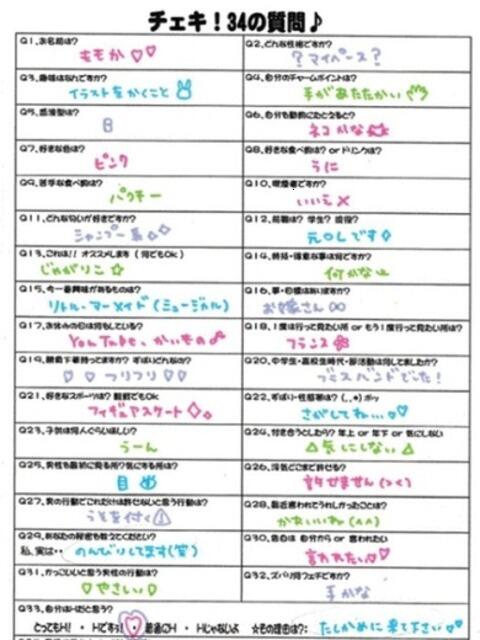 チェキ！34の質問♪
Q1、お名前は？
ももか♡♡
Q2、どんな性格ですか？
？マイペース？
Q3、趣味はなんですか？
イラストをかくこと
Q4、自分のチャームポイントは？
手があたたかい
Q5、血液型は？
B
Q6、自分を動物にたとえると？
ネコかな
Q7、好きな色は？
ピンク
Q8、好きな食べ物は？ or ドリンクは？
うに
Q9、苦手な食べ物は？
パクチー
Q10、喫煙者ですか？
いいえ×
Q11、どんな匂いが好きですか？
シャンプー系◇◇
Q12、前職は？ 学生？ 現役？
元OLです◇
Q13、これは!! オススメします（何でもOK）
じゃがりこ☆
Q14、特技・得意な事は何ですか？
何かな
Q15、今一番興味があるものは？
リトル・マーメイド（ミュージカル）
Q16、夢・目標はありますか？
お嫁さん
Q17、お休みの日は何をしている？
YouTube、かいもの
Q18、1度は行って見たい所 or もう1度行って見たい所は？
フランス
Q19、勝負下着持ってますか？ ずばりどんなの？
♡ ♡ フリフリ ♡♡
Q20、中学生・高校生時代・部活動は何してましたか？
ブラスバンドでした！
Q21、好きなスポーツは？ 観戦でもOK
フィギュアスケート◇。
Q22、ずばり・性感帯は？（．．*）ポッ
さがしてね…♡
Q23、子供は何人ぐらいほしい？
うーん
Q24、付き合うとしたら？ 年上 or 年下 or 気にしない
△気にしない△
Q25、男性を最初に見る所？気にする所は？
目
Q26、浮気どこまで許せる？
許せません（＞＜）
Q27、男の行動でこれだけは許せないと思う行動は？
うそを付く
Q28、最近言われてうれしかったことは？
かわいいね（^^）
Q29、あなたの秘密を教えてください？
私、実は‥ のんびりしてます（笑）
Q30、告白は 自分から or 言われたい
言われたい♡
Q31、かっこいいと思う男性の行動は？
♡やさしい♡
Q32、ズバリ何フェチですか？
手かな
Q33、自分はHだと思う？
とってもH! ・ Hですっ! ・ 普通にH ・ Hじゃないよ ☆その理由は？： たしかめに来て下さい♡